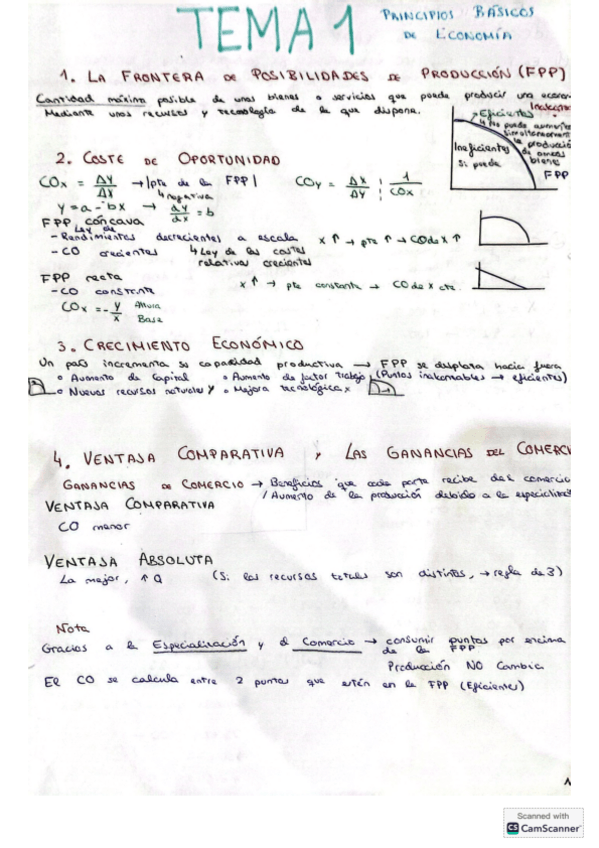 TEMA 1 PRINCIPIOS BÁSICOS
DE ECONOMÍA
1. LA FRONTERA DE POSIBILIDADES DE PRODUCCIÓN (FPP)
Cantidad máxima posible de unos bienes o servicios que puede producir una
Mediante unos recursos y tecnología de la que dispone.
Eficientes
No puede
simultáneamente
la
de ambos
bienes
Ineficientes
Si puede
FPP
2. COSTE DE OPORTUNIDAD
COx = ΔY/ΔX → |pte de la FPP| COy = ΔX/ΔY ; 1/COx
negativa
y = a - bx → dy/dx = b
FPP CÓNCAVA
Ley de
- Rendimientos decrecientes a escala x ↑ → pte ↑ → CO de X ↑
- CO crecientes Ley de los costes
relativos crecientes
FPP recta
- CO constante x ↑ → pte constante → CO de X cte.
COx = - y/x Altura
Base
3. CRECIMIENTO ECONÓMICO
Un país incrementa su capacidad productiva → FPP se desplaza hacia fuera
o Aumento de Capital o Aumento de factor trabajo (Puntos inalcanzables → eficientes)
o Nuevos recursos naturales y o Mejora tecnológica x
4. VENTAJA COMPARATIVA Y LAS GANANCIAS DEL
GANANCIAS DE COMERCIO → Beneficios que cada parte recibe del comercio
/ Aumento de la producción debido a la
VENTAJA COMPARATIVA
CO menor
VENTAJA ABSOLUTA
La mejor, ↑ Q (Si los recursos totales son distintos, → regla de 3)
Nota
Gracias a la Especialización y el Comercio → consumir puntos por encima
de la FPP
Producción NO Cambia
El CO se calcula entre 2 puntos que estén en la FPP (Eficientes)
Scanned with
CS CamScanner